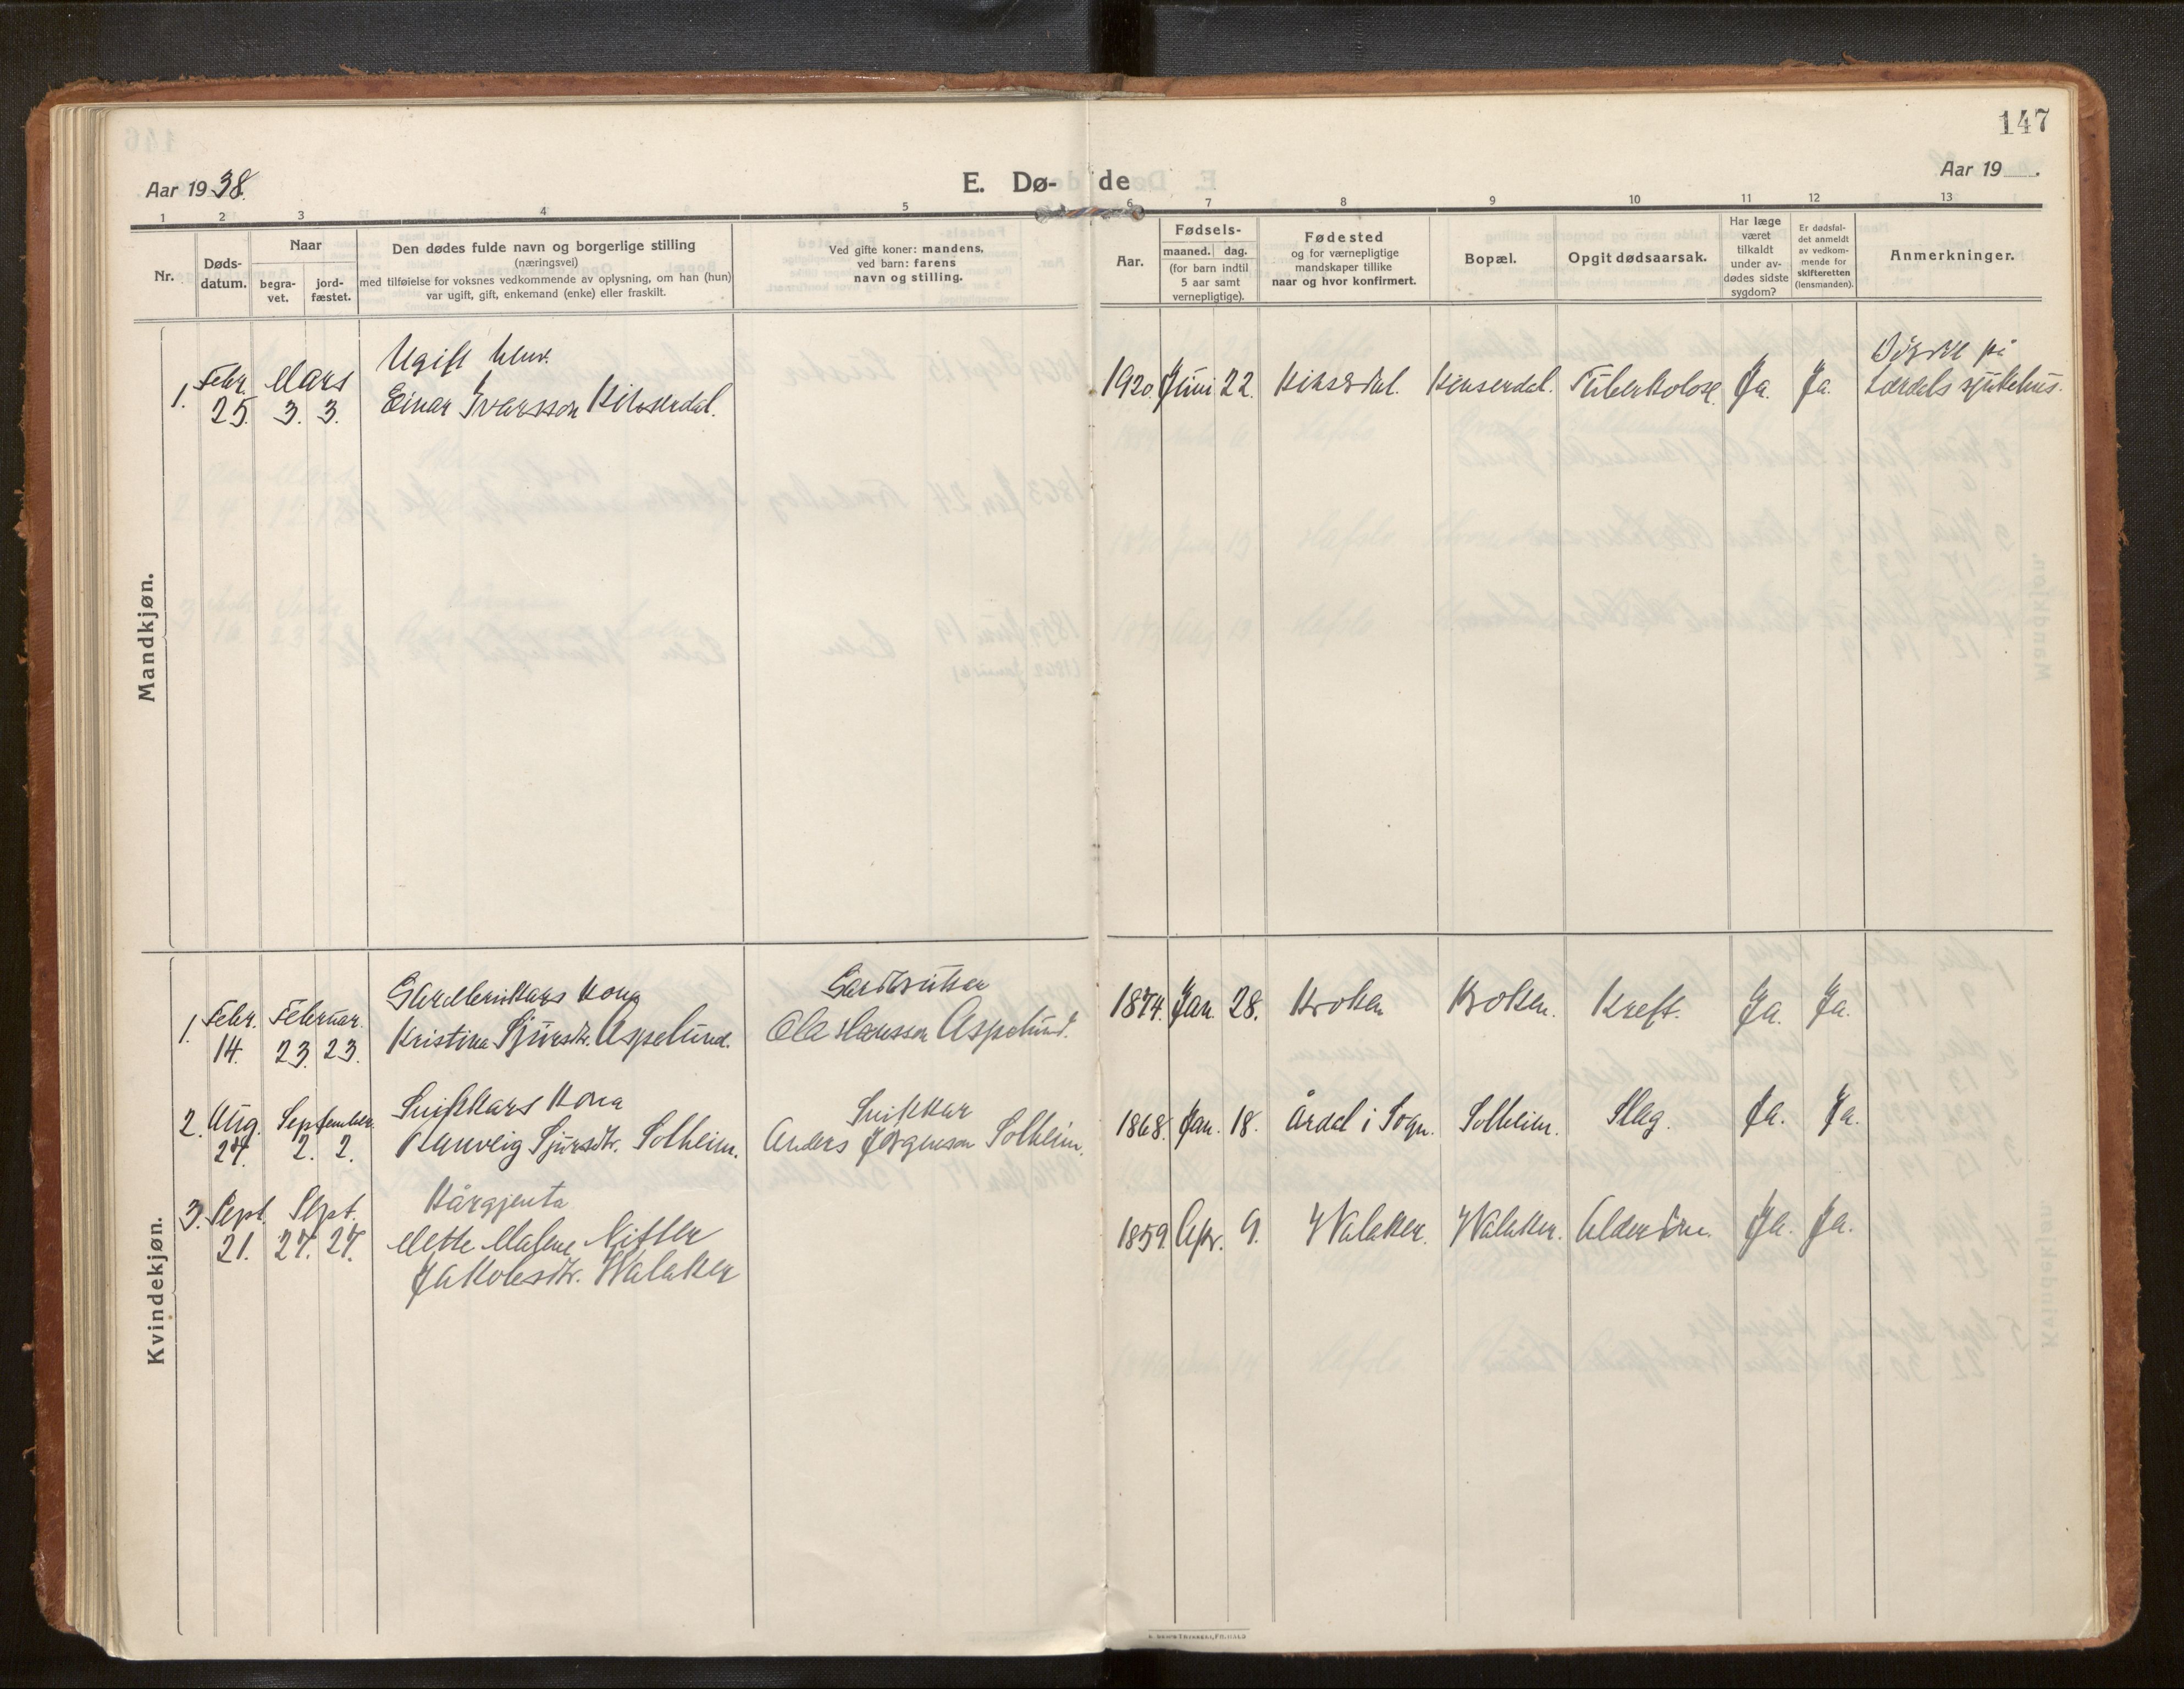 147
Aar 1938.
E. Dø- de
Aar 19 .
1 2 3 4 5 6 7 8 9 10 11 12 13
Nr.
Døds-
datum.
Naar
begra-
vet.
jord-
fæstet.
Den dødes fulde navn og borgerlige stilling
(næringsvei)
med tilføielse for voksnes vedkommende av oplysning, om han (hun)
var ugift, gift, enkemand (enke) eller fraskilt.
Ved gifte koner: mandens,
ved barn: farens
navn og stilling.
Aar.
Fødsels-
maaned. dag.
(for barn indtil
5 aar samt
vernepligtige).
Fødested
og for værnepligtige
mandskaper tillike
naar og hvor konfirmert.
Bopæl.
Opgit dødsaarsak.
Har læge
været
tilkaldt
under av-
dødes sidste
sygdom?
Er dødsfal-
det anmeldt
av vedkom-
mende for
skifteretten
(lensmanden).
Anmerkninger.
Mandkjøn.
Ugift
1. Febr. Mars
25. 3. 3.
Einar Ivarsson Kinserdal.
1920. Juni 22. Kinserdal. Kinserdal. Tuberkolose. Ja. Ja.
på
Lærdals sjukehus.
Kvindekjøn.
Gardbrukars kona
1. Febr. Februar.
14. 23. 23.
Kristina Sjursdtr. Aspelund.
Gardbrukar
Ola Hansson Aspelund.
1874. Jan. 28. Kroken Kroken. Kreft. Ja. Ja.
Snikkars kona
2. Aug. September.
27. 2. 2.
Ranveig Sjursdtr. Solheim.
Snikkar
Anders Jørgenson Solheim.
1868. Jan. 18. Årdal i Sogn. Solheim. Slag. Ja. Ja.
Kårgjenta
3. Sept. Sept.
21. 27. 27.
Mette Malene Nitter
Jakobsdtr. Walaker
1859. Apr. 9. Walaker. Walaker. Alderdom. Ja. Ja.